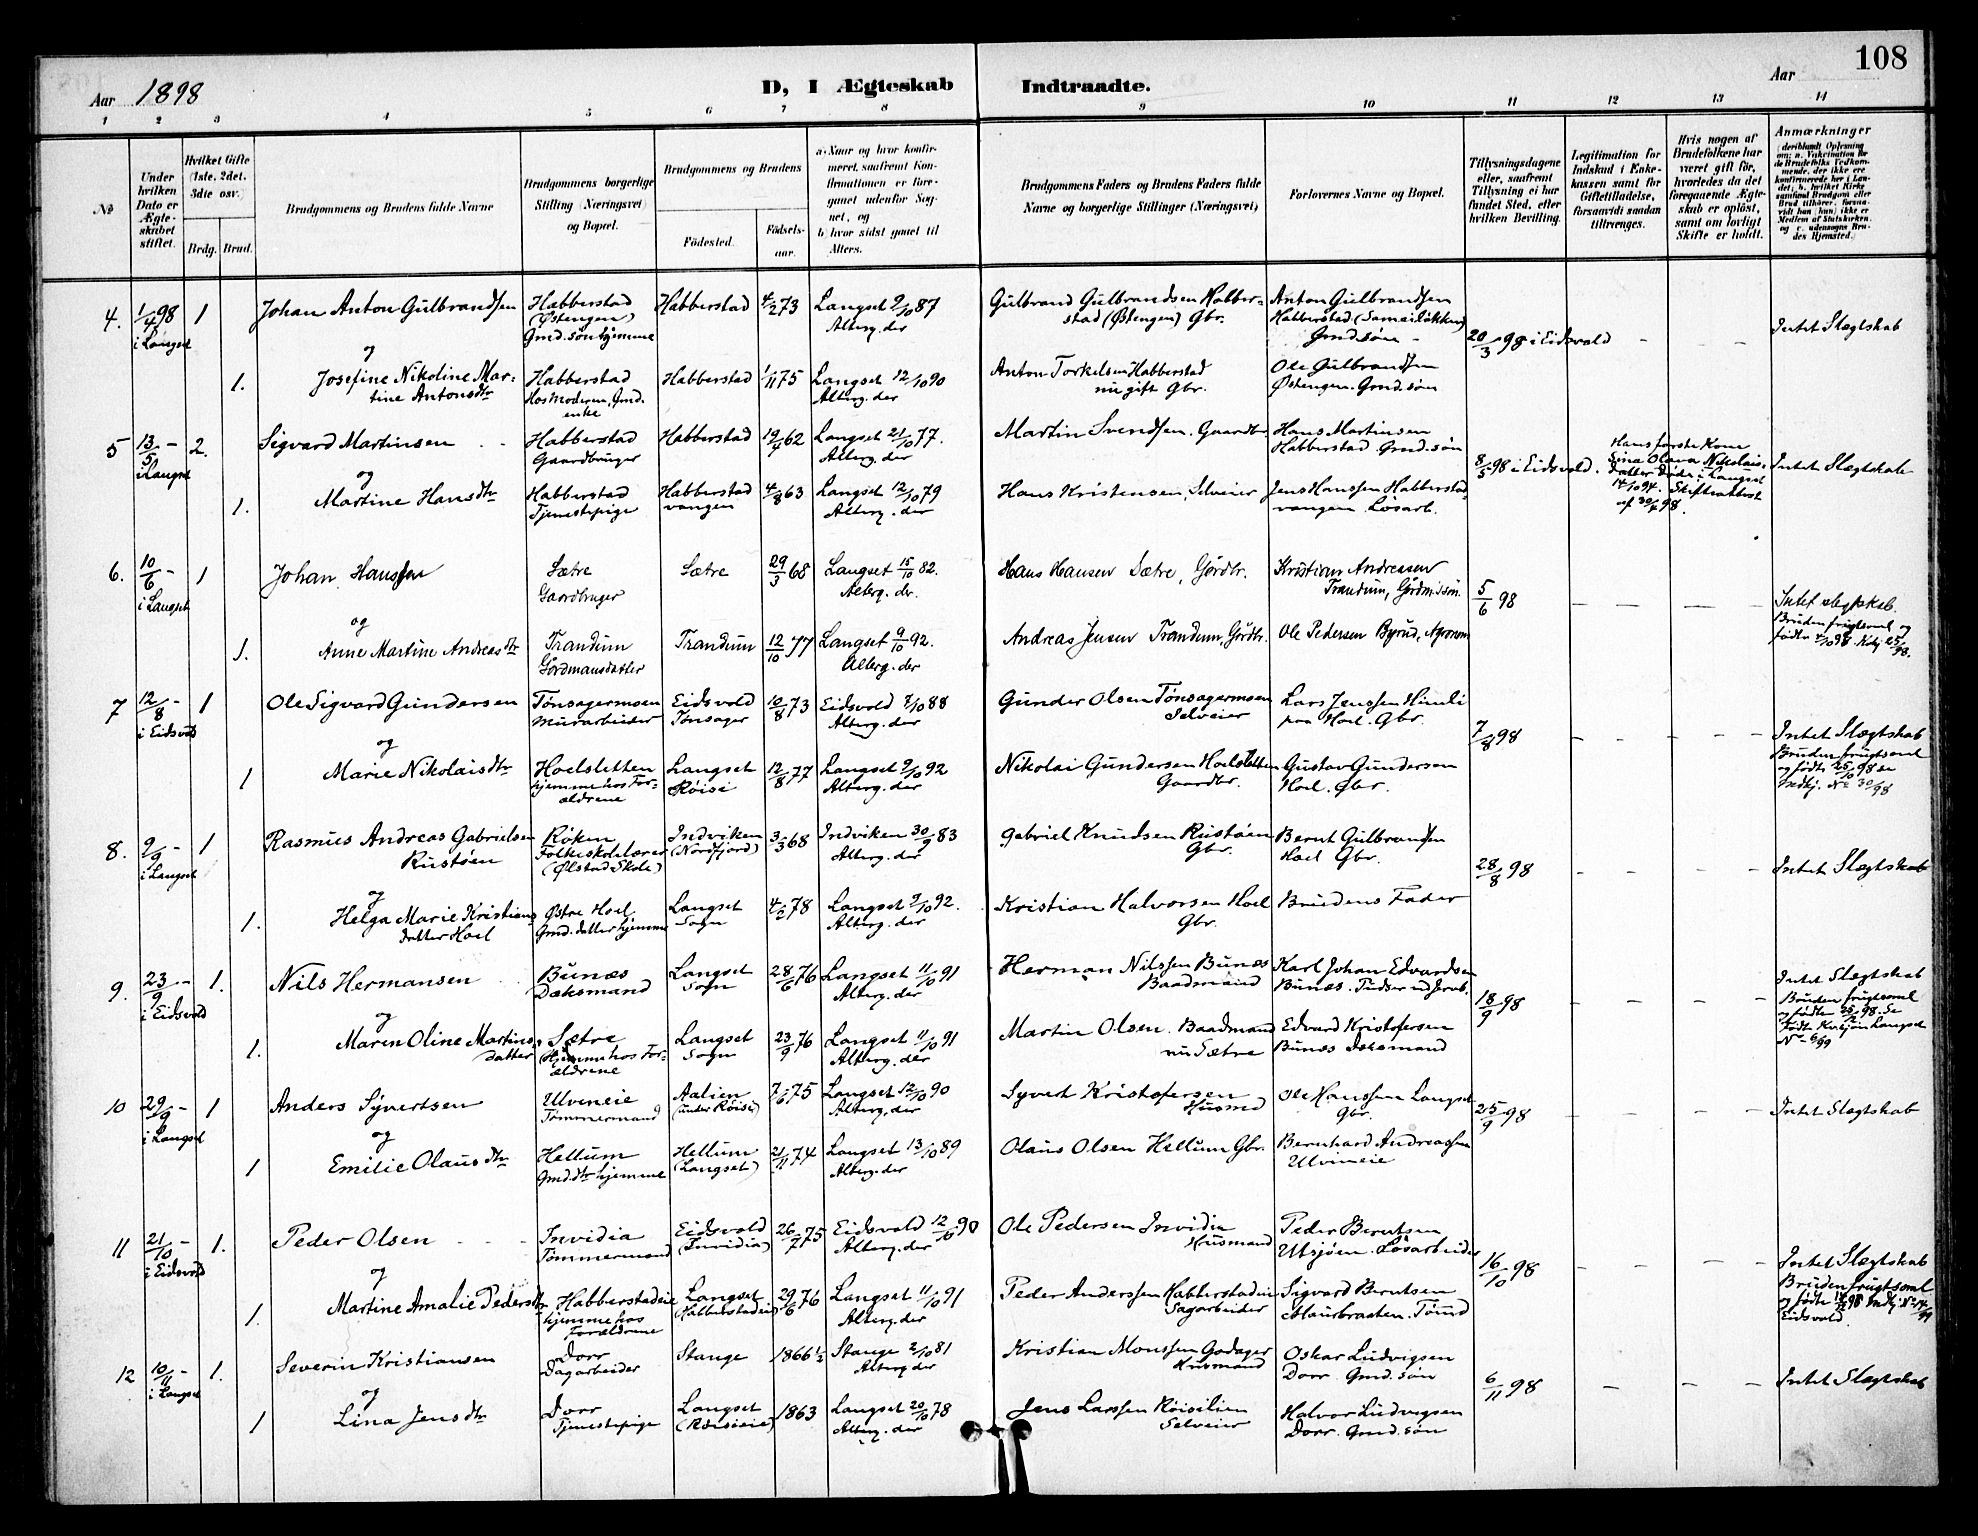 108
Aar 1898
D, I Ægteskab Indtraadte.
Aar
1 2 3 4 5 6 7 8 9 10 11 12 13 14
№
Under hvilken Dato er Ægteskabet stiftet.
Hvilket Gifte (1ste, 2det, 3die osv.)
Brdg. Brud.
Brudgommens og Brudens fulde Navne
Brudgommens borgerlige Stilling (Næringsvei) og Bopæl.
Brudgommens og Brudens
Fødested.
Fødselsaar.
a. Naar og hvor konfirmeret, saafremt Konfirmationen er foregaaet udenfor Sognet, og
b. hvor sidst gaaet til Alters.
Brudgommens Faders og Brudens Faders fulde Navne og borgerlige Stillinger (Næringsvei)
Forlovernes Navne og Bopæl.
Tillysningsdagene eller, saafremt Tillysning ei har fundet Sted, efter hvilken Bevilling.
Legitimation for Indskud i Enkekassen samt for Giftetilladelse, forsaavidt saadan tiltrænges.
Hvis nogen af Brudefolkene har været gift før, hvorledes da det foregaaende Ægteskab er opløst, samt om lovligt Skifte er holdt.
Anmærkninger
4. 1/4 98 i Langset 1 Johan Anton Gulbrandsen Habberstad (Østengen) Gmd. søn hjemme Habberstad 4/2 73 Langset 9/10 87 Alterg. der Gulbrand Gulbrandsen Habberstad (Østengen) Gbr. Anton Gulbrandsen Habberstad Gmd. søn 20/3 98 i Eidsvold - - Intet Slægtskab
og
1. Josefine Nikoline Martine Antonsdtr Habberstad Hos Moderen, Gmd. enke Habberstad 1/11 75 Langset 12/10 90 Alterg. der Anton Torkelsen Habberstad nu gift Gbr. Ole Gulbrandsen Østengen. Gmd. søn
5 13/5 - i Langset 2. Sigvard Martinsen Habberstad Gaardbruger Habberstad 19/4 62 Langset 21/10 77. Alterg. der Martin Svendsen. Gaardbr. Hans Martinsen Habberstad Gmd. søn 8/5 98 i Eidsvold. Hans første Kone Sina Olava Nikolaisdatter døde i Langset 14/10 94. Skifteattest af 30/4 98. Intet Slægtskab
og
1. Martine Hansdtr Habberstad Tjenestepige Habberstad vangen 4/8 63 Langset 12/10 79 Alterg. der Hans Kristensen, Selveier Jens Hanssen Habberstadvangen Løsarb.
6. 10/6 - i Langset 1 Johan Hanssen Sætre Gaardbruger Sætre 29/3 68 Langset 15/10 82. Alterg. der. Hans Hansen Sætre, Gårdbr. Kristian Andreassen Trandum, Gårdm. søn. 5/6 98 - - - - Intet slegtskab. Bruden frugtsomel og
og
1. Anne Martine Andreasdtr Trandum Gårdmansdatter Trandum 12/10 77 Langset 9/10 92. Alterg. der Andreas Jensen Trandum, Gårdbr. Ole Pedersen Byrud, Agronom
7 12/8 - i Eidsvold 1 Ole Sigvard Gundersen Tønsagermoen Murarbeider Eidsvold Tønsager 10/8 73 Eidsvold 7/10 88 Alterg. der Gunder Olsen Tønsagermoen Selveier Lars Jenssen Himli paa Hoel. Gbr. 7/8 98 - - - - Intet Slægtskab
og
1 Marie Nikolaisdtr Hoelsletten hjemme hos Forældrene Langset Røise 12/8 77 Langset 9/10 92 Alterg. der Nikolai Gundersen Hoelsletten Gaardbr. Gustav Gundersen Hoel. Gbr. Bruden frugtsomel og fødte 25/10 98
8. 9/9 - i Langset 1 Rasmus Andreas Gabrielsen Rustøen Røken Folkeskolelærer (Ølstad Skole) Indviken (Nordfjord) 3/3 68 Indviken 30/9 83 Alterg. der Gabriel Knudsen Rustøen Gbr. Bernt Gulbrandsen Hoel Gbr. 28/8 98 - - - - Intet Slægtskab
og
1. Helga Marie Kristiansdatter Hoel Østre Hoel Gmd. datter hjemme Langset Sogn 4/2 78 Langset 9/10 92. Alterg. der Kristian Halvorsen Hoel Gbr. Brudens Fader
9. 23/9 - i Eidsvold 1. Nils Hermansen Bunæs Dæksmand Langset Sogn 28/6 76 Langset 11/10 91 Alterg. der Herman Nilssen Bunæs Baadmand Karl Johan Edvardsen Bunæs. 18/9 98 - - - - Intet Slægtskab
og
1. Maren Oline Martinsdatter Sætre Hjemme hos Forældrene Langset Sogn 23/9 76 Langset 11/10 91 Alterg. der Martin Olsen. Baadmand nu Sætre Edvard Kristofersen Bunæs Dæksmand Bruden frugtsomel og fødte
10 29/9 - i Langset 1 Anders Syvertsen Ulvineie Tømmermand Aalien (under Røise) 7/6 75 Langset 12/10 90 Alterg. der Syvert Kristofersen Husmd Ole Hanssen Langset Gbr. 25/9 98 - - - - Intet Slægtskab
og
1 Emilie Olausdtr Hellum Gmd. dtr hjemme Hellum (Langset) 21/11 74 Langset 13/10 89 Alterg. der Olaus Olsen Hellum Gbr. Bernhard Andreassen Ulvineie
11 21/10 - i Eidsvold 1. Peder Olsen Invidia Tømmermand Eidsvold (Invidia) 26/7 75 Eidsvold 12/10 90 Alterg. der Ole Pedersen Invidia Husmand Peder Berntsen Utsjøen. Løsarbeider 16/10 98 - - - - Intet Slægtskab
og
1. Martine Amalie Pedersdtr Habberstadeie hjemme hos Forældrene Langset (Habberstadeie) 29/6 76 Langset 11/10 91 Alterg. der Peder Anderssen Habberstadeie Sagarbeider Sigvard Berntsen Maurbraaten. Tømmd Bruden frugtsomel og fødte Eidsvold.
12 10/11 - i Langset 1. Severin Kristiansen Dorr Dagarbeider Stange 1866 1/2 Stange 2/10 81 Alterg. der Kristian Monssen Godager Husmand Oskar Ludvigsen Dorr. Gmd. søn 6/11 98 - - - Intet Slægtskab
og
1 Lina Jensdtr Dorr Tjenestepige Langset 1863 Langset 20/10 78 Alterg. der Jens Larssen Røisilien Selveier Halvor Ludvigsen Dorr. Gmd. søn